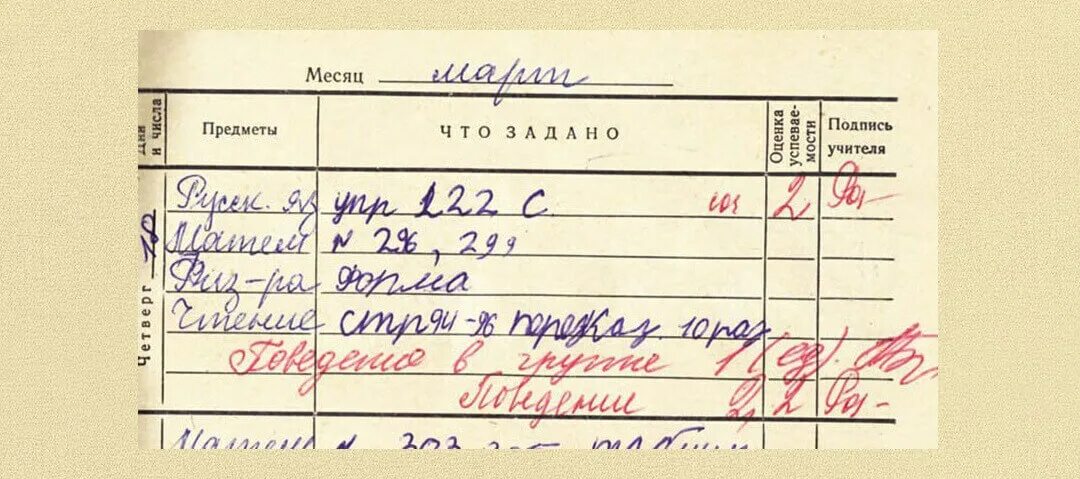 Месяц март
Дни и числа Предметы ЧТО ЗАДАНО Оценка успеваемости Подпись учителя
Четверг 18
Русск. яз упр 122 С. 2
Матем № 296, 299
Физ-ра форма
Чтение стр 94-96 10 раз
Поведение в группе 1 (ед).
Поведение 2, 2